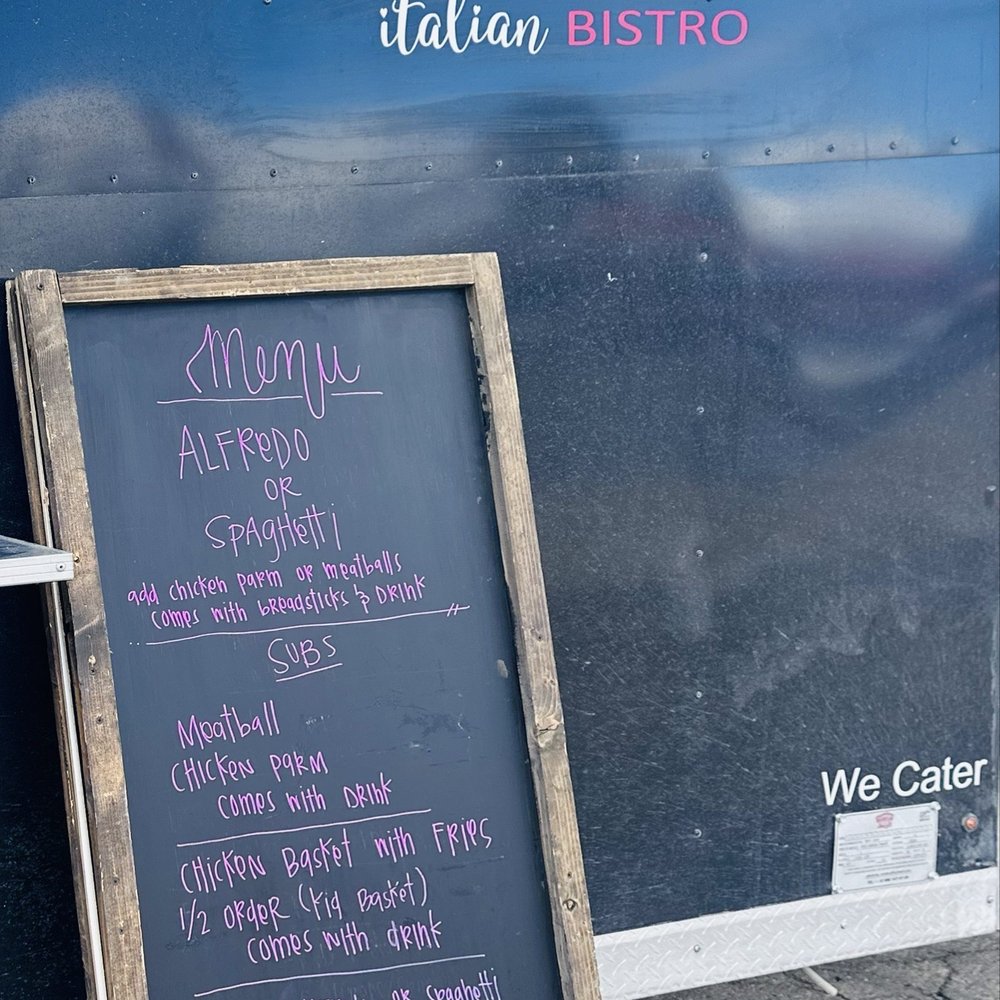 italian BISTRO
Menu
ALFReDO
OR
SPAGHetti
add chicken parm or meatballs
comes with breadsticks & DRINK
SUBS
Meatball
CHICKEN PARM
comes with DRINK
CHICKEN BASKET with FRIES
1/2 ORDER (Kid Basket)
comes with drink
or spaghetti
We Cater